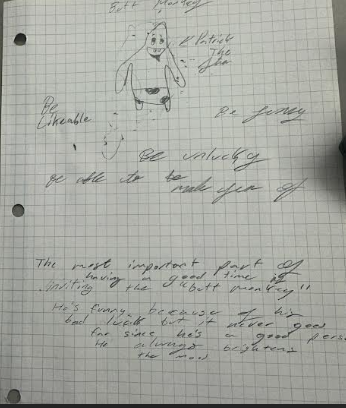 Butt Monkey
Patrick
The
Be
Likeable
Be funny
Be unlucky
Be able to be
made fun of
The most important part of
having a good time is
inviting the "butt monkey"
He's funny because of his
bad luck but it never goes
far since he's a good pers
He always brightens
the mood